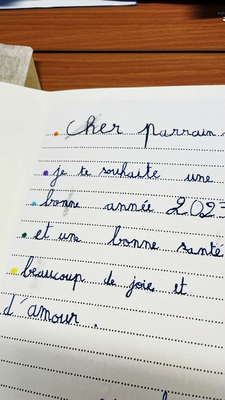 cher parrain
je te souhaite une
bonne année 2023
et une bonne santé
beaucoup de joie et
d'amour.